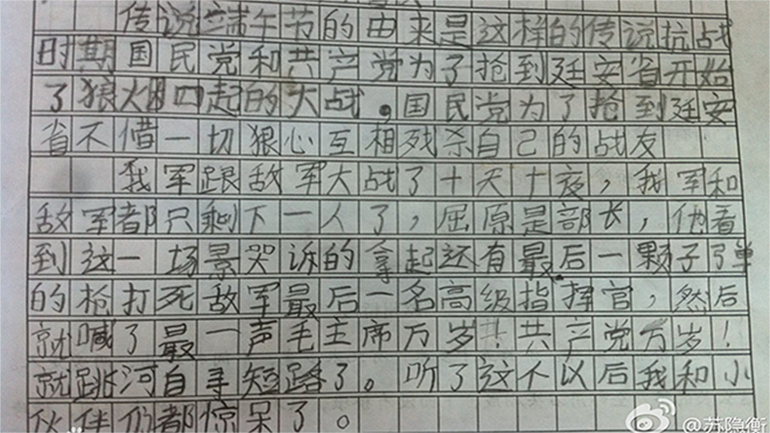 传说端午节的由来是这样的传说抗战
时期国民党和共产党为了抢到廷安省开始
了狼烟四起的大战。国民党为了抢到廷安
省不借一切狠心互相残杀自己的战友
我军跟敌军大战了十天十夜，我军和
敌军都只剩下一人了，屈原是部长，他看
到这一场景哭诉的拿起还有最后一颗子弹
的枪打死敌军最后一名高级指挥官，然后
就喊了最一声毛主席万岁！共产党万岁！
就跳河自寻短路了。听了这个以后我和小
伙伴们都惊呆了。
@苏隐衡